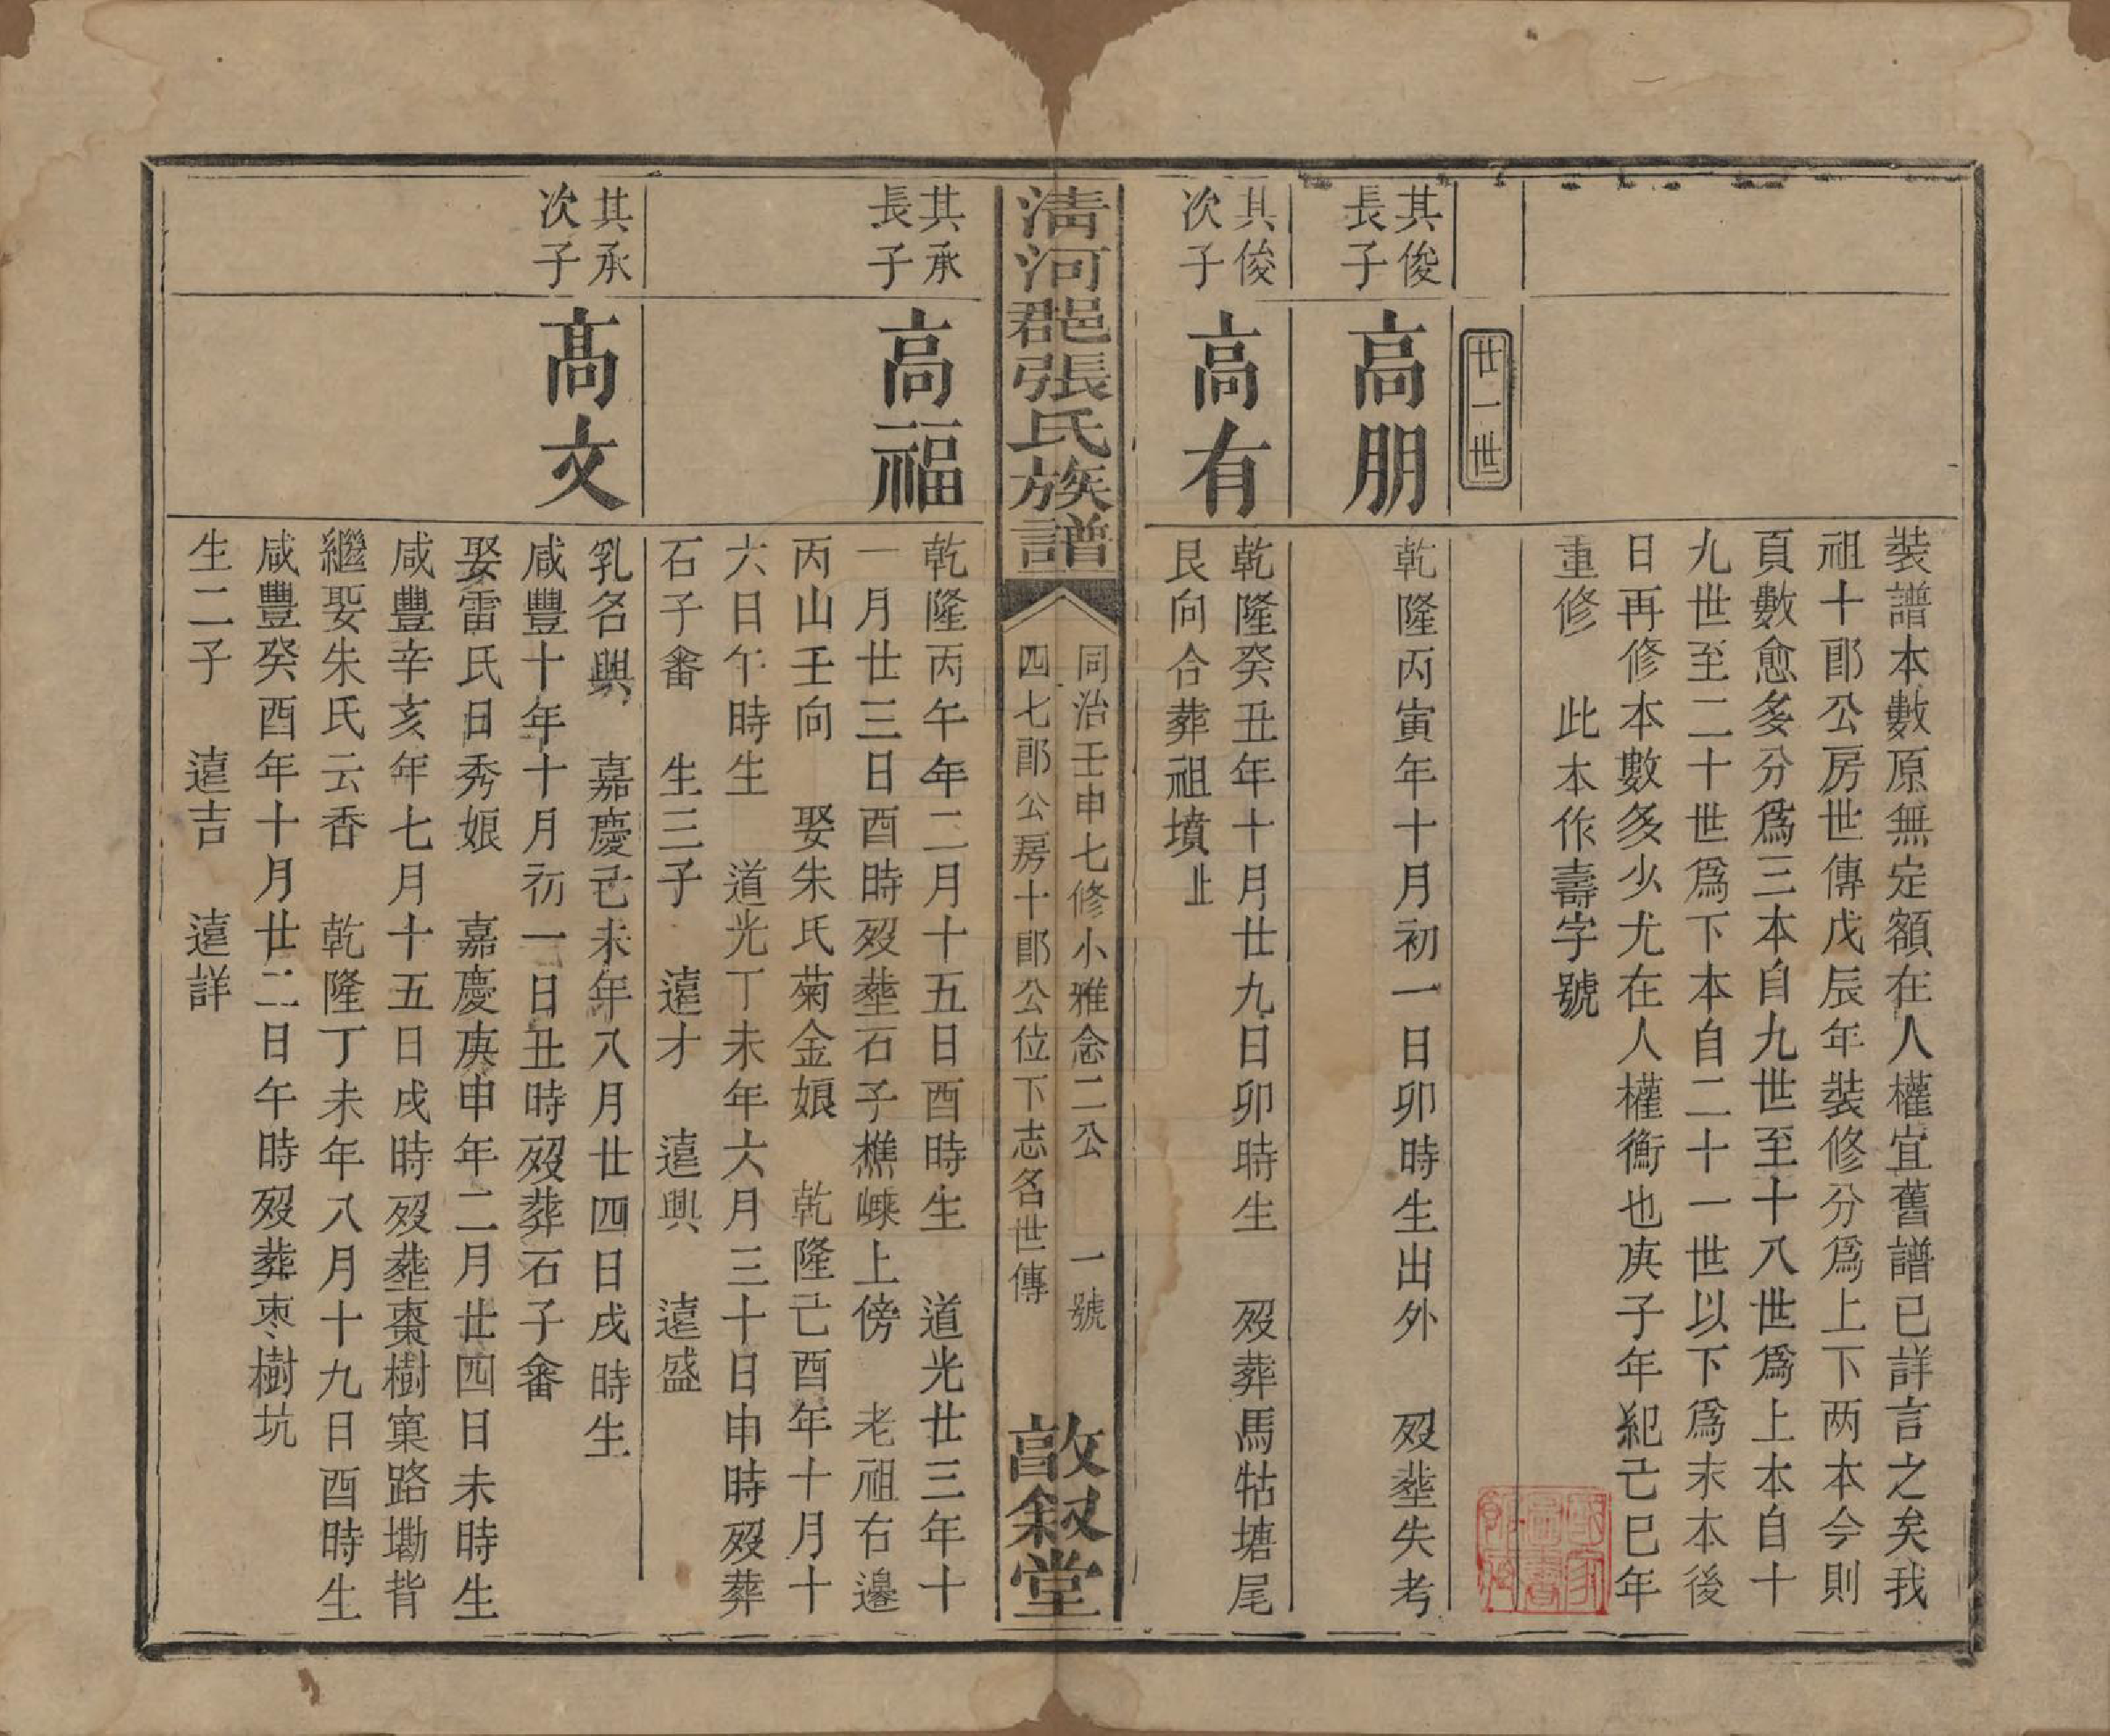 裝譜本數原無定額在人權宜舊譜已詳言之矣我
祖十郎公房世傳戊辰年裝修分爲上下两本今則
頁數愈多分爲三本自九世至十八世爲上本自十
九世至二十世爲下本自二十一世以下爲末本後
日再修本數多少尤在人權衡也庚子年紀己巳年
重修 此本作壽字號
廿一世
其俊
長子
高朋
乾隆丙寅年十月初一日卯時生出外 歿塟失考
其俊
次子
高有
乾隆癸丑年十月廿九日卯時生 歿葬馬牯塘尾
艮向合葬祖墳止
清河郡張氏族譜
同治壬申七修小雅念二公 一號
四七郎公房十郎公位下志名世傳
敦叙堂
其承
長子
高福
乾隆丙午年二月十五日酉時生 道光廿三年十
一月廿三日酉時歿塟石子樵嵊上傍 老祖右邊
丙山壬向 娶朱氏菊金娘 乾隆己酉年十月十
六日午時生 道光丁未年六月三十日申時歿葬
石子畲 生三子 遠才 遠興 遠盛
其承
次子
高文
乳名興 嘉慶己未年八月廿四日戌時生
咸豐十年十月初一日丑時歿葬石子畲
娶雷氏日秀娘 嘉慶庚申年二月廿四日未時生
咸豐辛亥年七月十五日戌時歿塟棗樹窠路塝背
繼娶朱氏云香 乾隆丁未年八月十九日酉時生
咸豐癸酉年十月廿二日午時歿葬枣樹坑
生二子 遠吉 遠詳